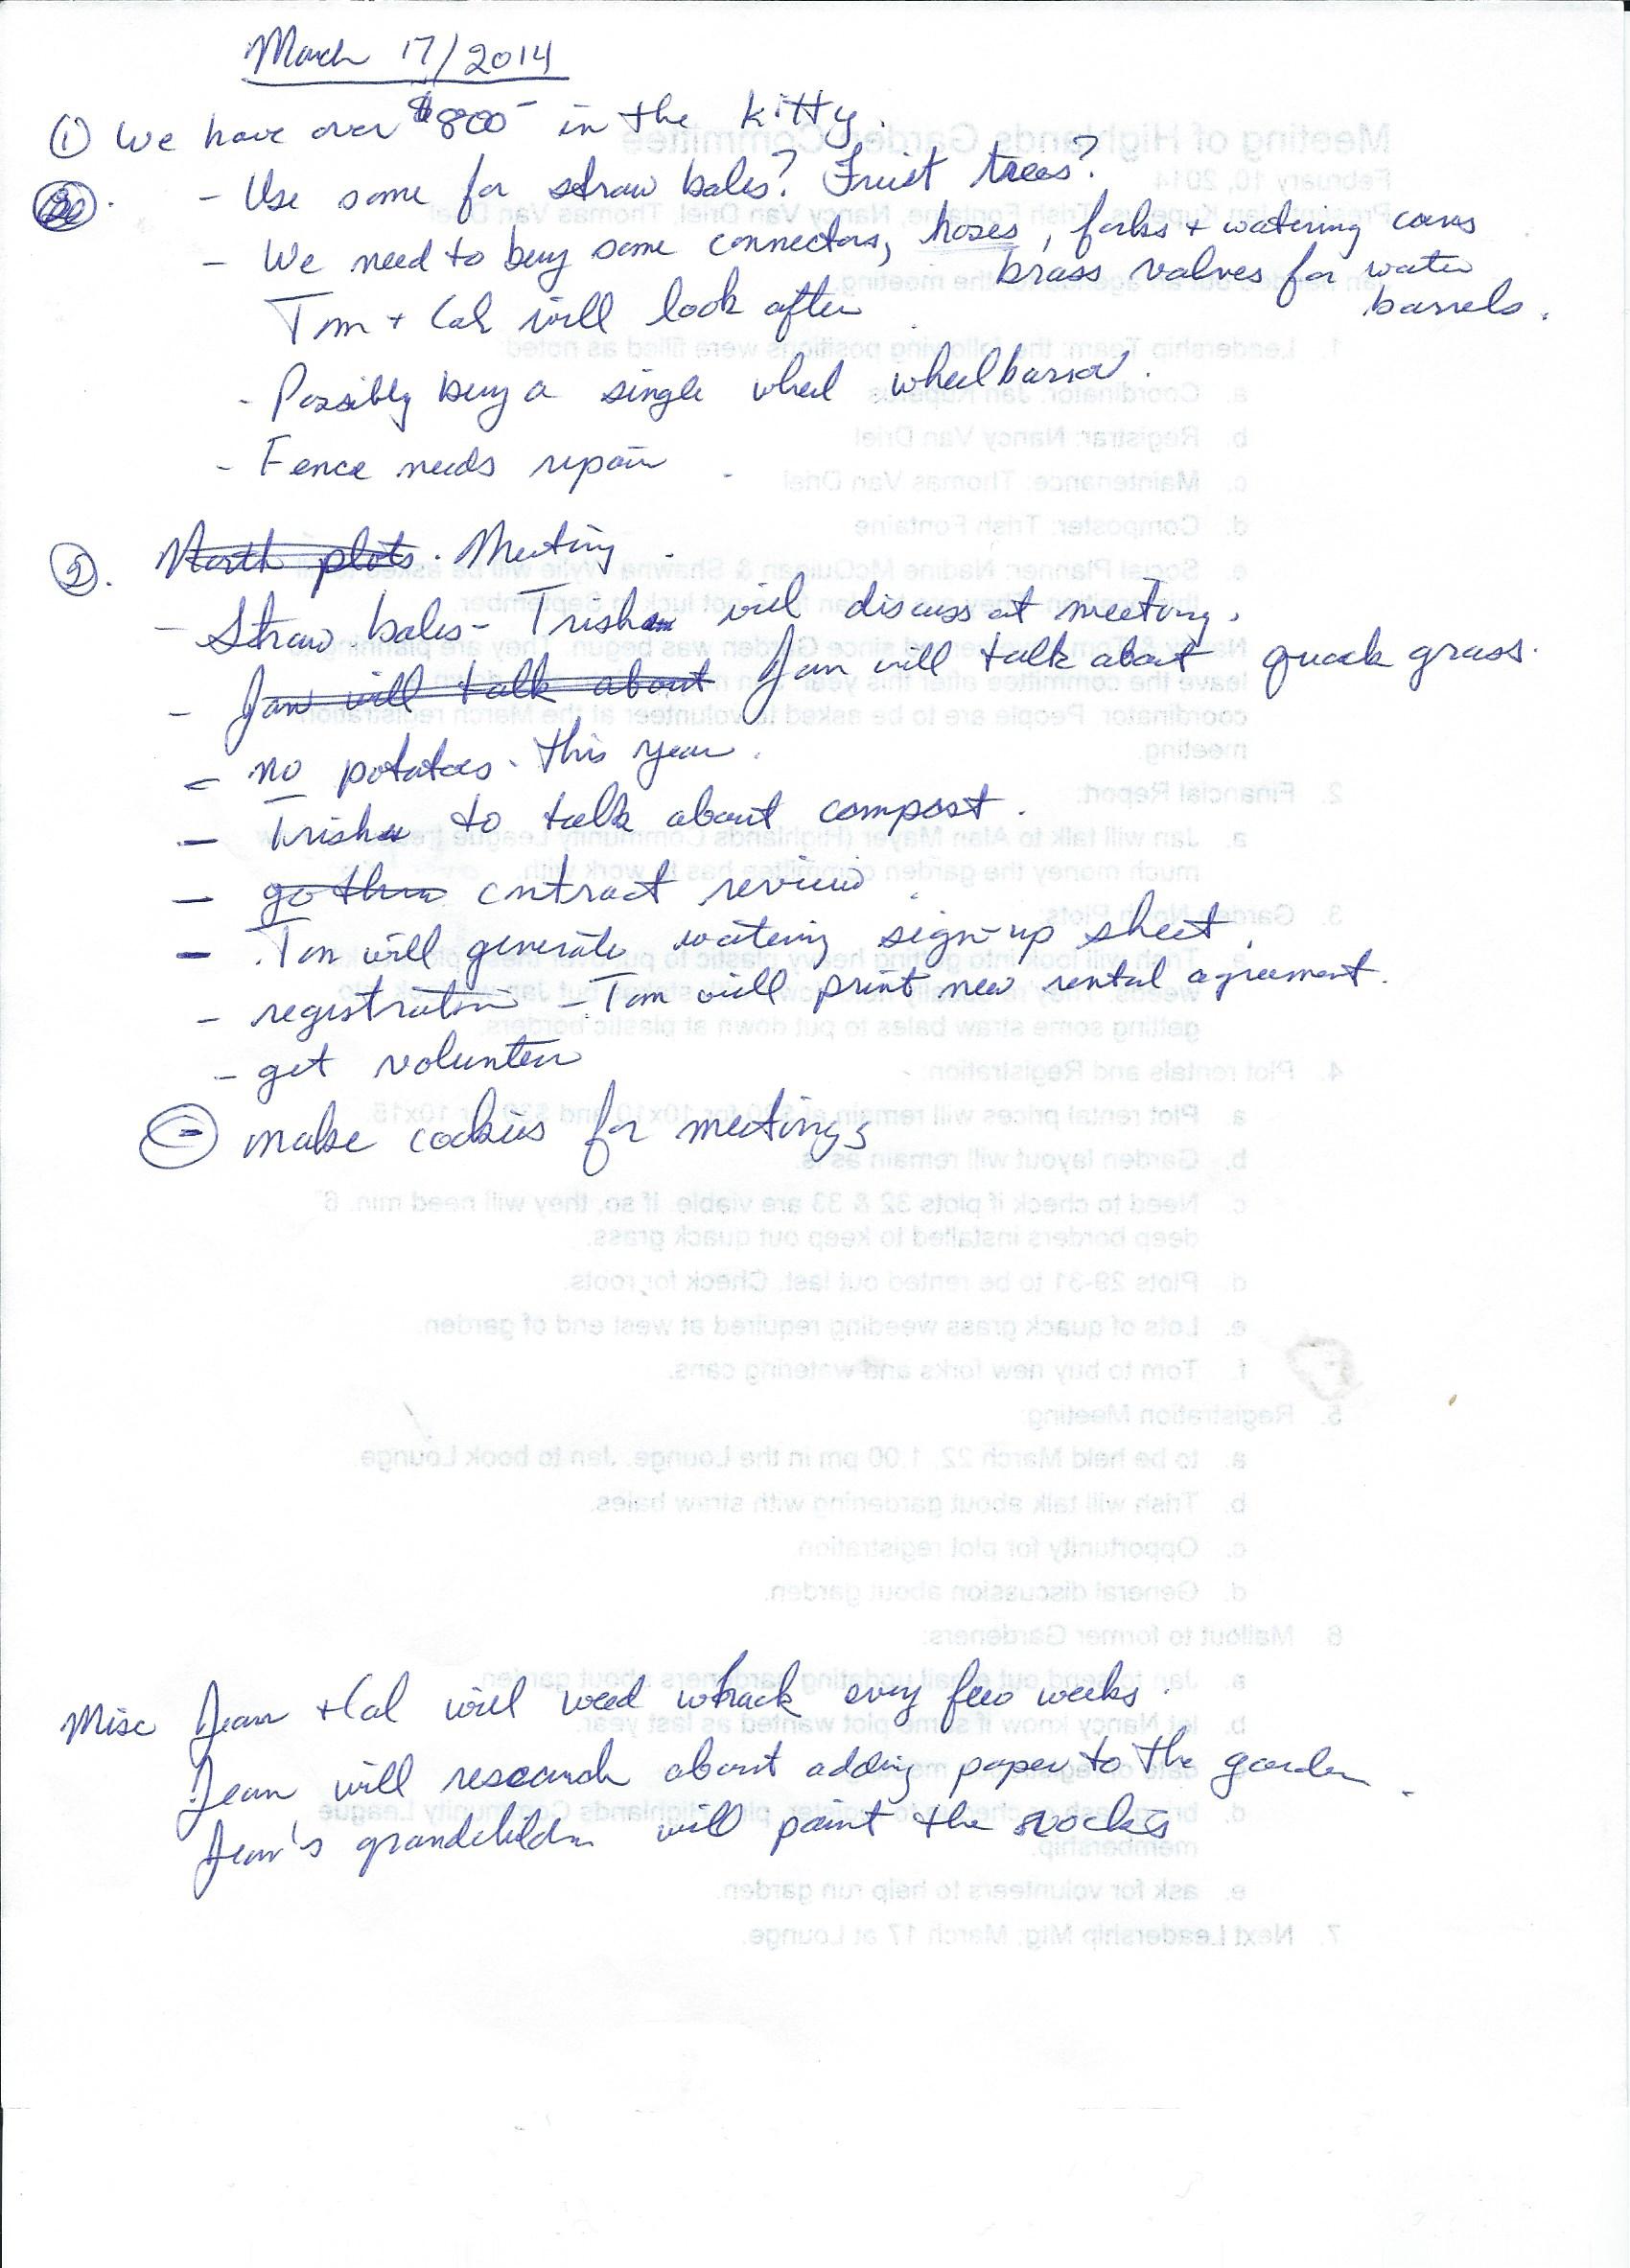 March 17/2014
① We have over $800- in the kitty.
- Use some for straw bales? Fruit trees?
- We need to buy some connectors, hoses, forks + watering cans
brass valves for water
barrels.
Tom + Cal will look after
- Possibly buy a single wheel wheelbarrow.
- Fence needs repair
②. North plots. Meeting
- Straw bales - Trish will discuss at meeting.
- Jan will talk about Jan will talk about quack grass.
- no potatoes this year.
- Trish to talk about compost.
- go thru contract review
- Tom will generate watering sign-up sheet.
- registration - Tom will print new rental agreement.
- get volunteer
- make cookies for meetings
Misc Jean + Cal will weed whack every few weeks.
Jean will research about adding paper to the garden.
Jean's grandchildren will paint the rocks
Meeting of Highlands Garden Committee
February 10, 2014
Present: Jan Kuperus, Trish Fontaine, Nancy Van Driel, Thomas Van Driel
1. Leadership Team: the following positions were filled as noted:
a. Coordinator: Jan Kuperus
b. Registrar: Nancy Van Driel
c. Maintenance: Thomas Van Driel
d. Composter: Trish Fontaine
e. Social Planner: Nadine McGuigan & Shawna Wylie will be asked
leave the committee after this year
coordinator. People are to be asked to volunteer at the March registration
meeting.
2. Financial Report:
a. Jan will talk to Alan Mayer (Highlands Community League
much money the garden committee has to work with.
3. Garden North Plots:
a. Trish will look into getting heavy plastic to put over these
getting some straw bales to put down at plastic borders.
4. Plot rentals and Registration:
a. Plot rental prices will remain at $20 for 10x10 and $30 for 10x15.
b. Garden layout will remain as is.
c. Need to check if plots 32 & 33 are viable. If so, they will need min. 6
deep borders installed to keep out quack grass.
d. Plots 29-31 to be rented out last. Check for roots.
e. Lots of quack grass weeding required at west end of garden.
f. Tom to buy new forks and watering cans.
5. Registration Meeting:
a. to be held March 22, 1:00 pm in the Lounge. Jan to book Lounge
b. Trish will talk about gardening with straw bales.
c. Opportunity for plot registration
d. General discussion about garden.
6. Mailout to former Gardeners:
a. Jan to send out email updating gardeners about garden.
b. let Nancy know if same plot wanted as last year.
Highlands Community League
membership.
e. ask for volunteers to help run garden.
7. Next Leadership Mtg: March 17 at Lounge.